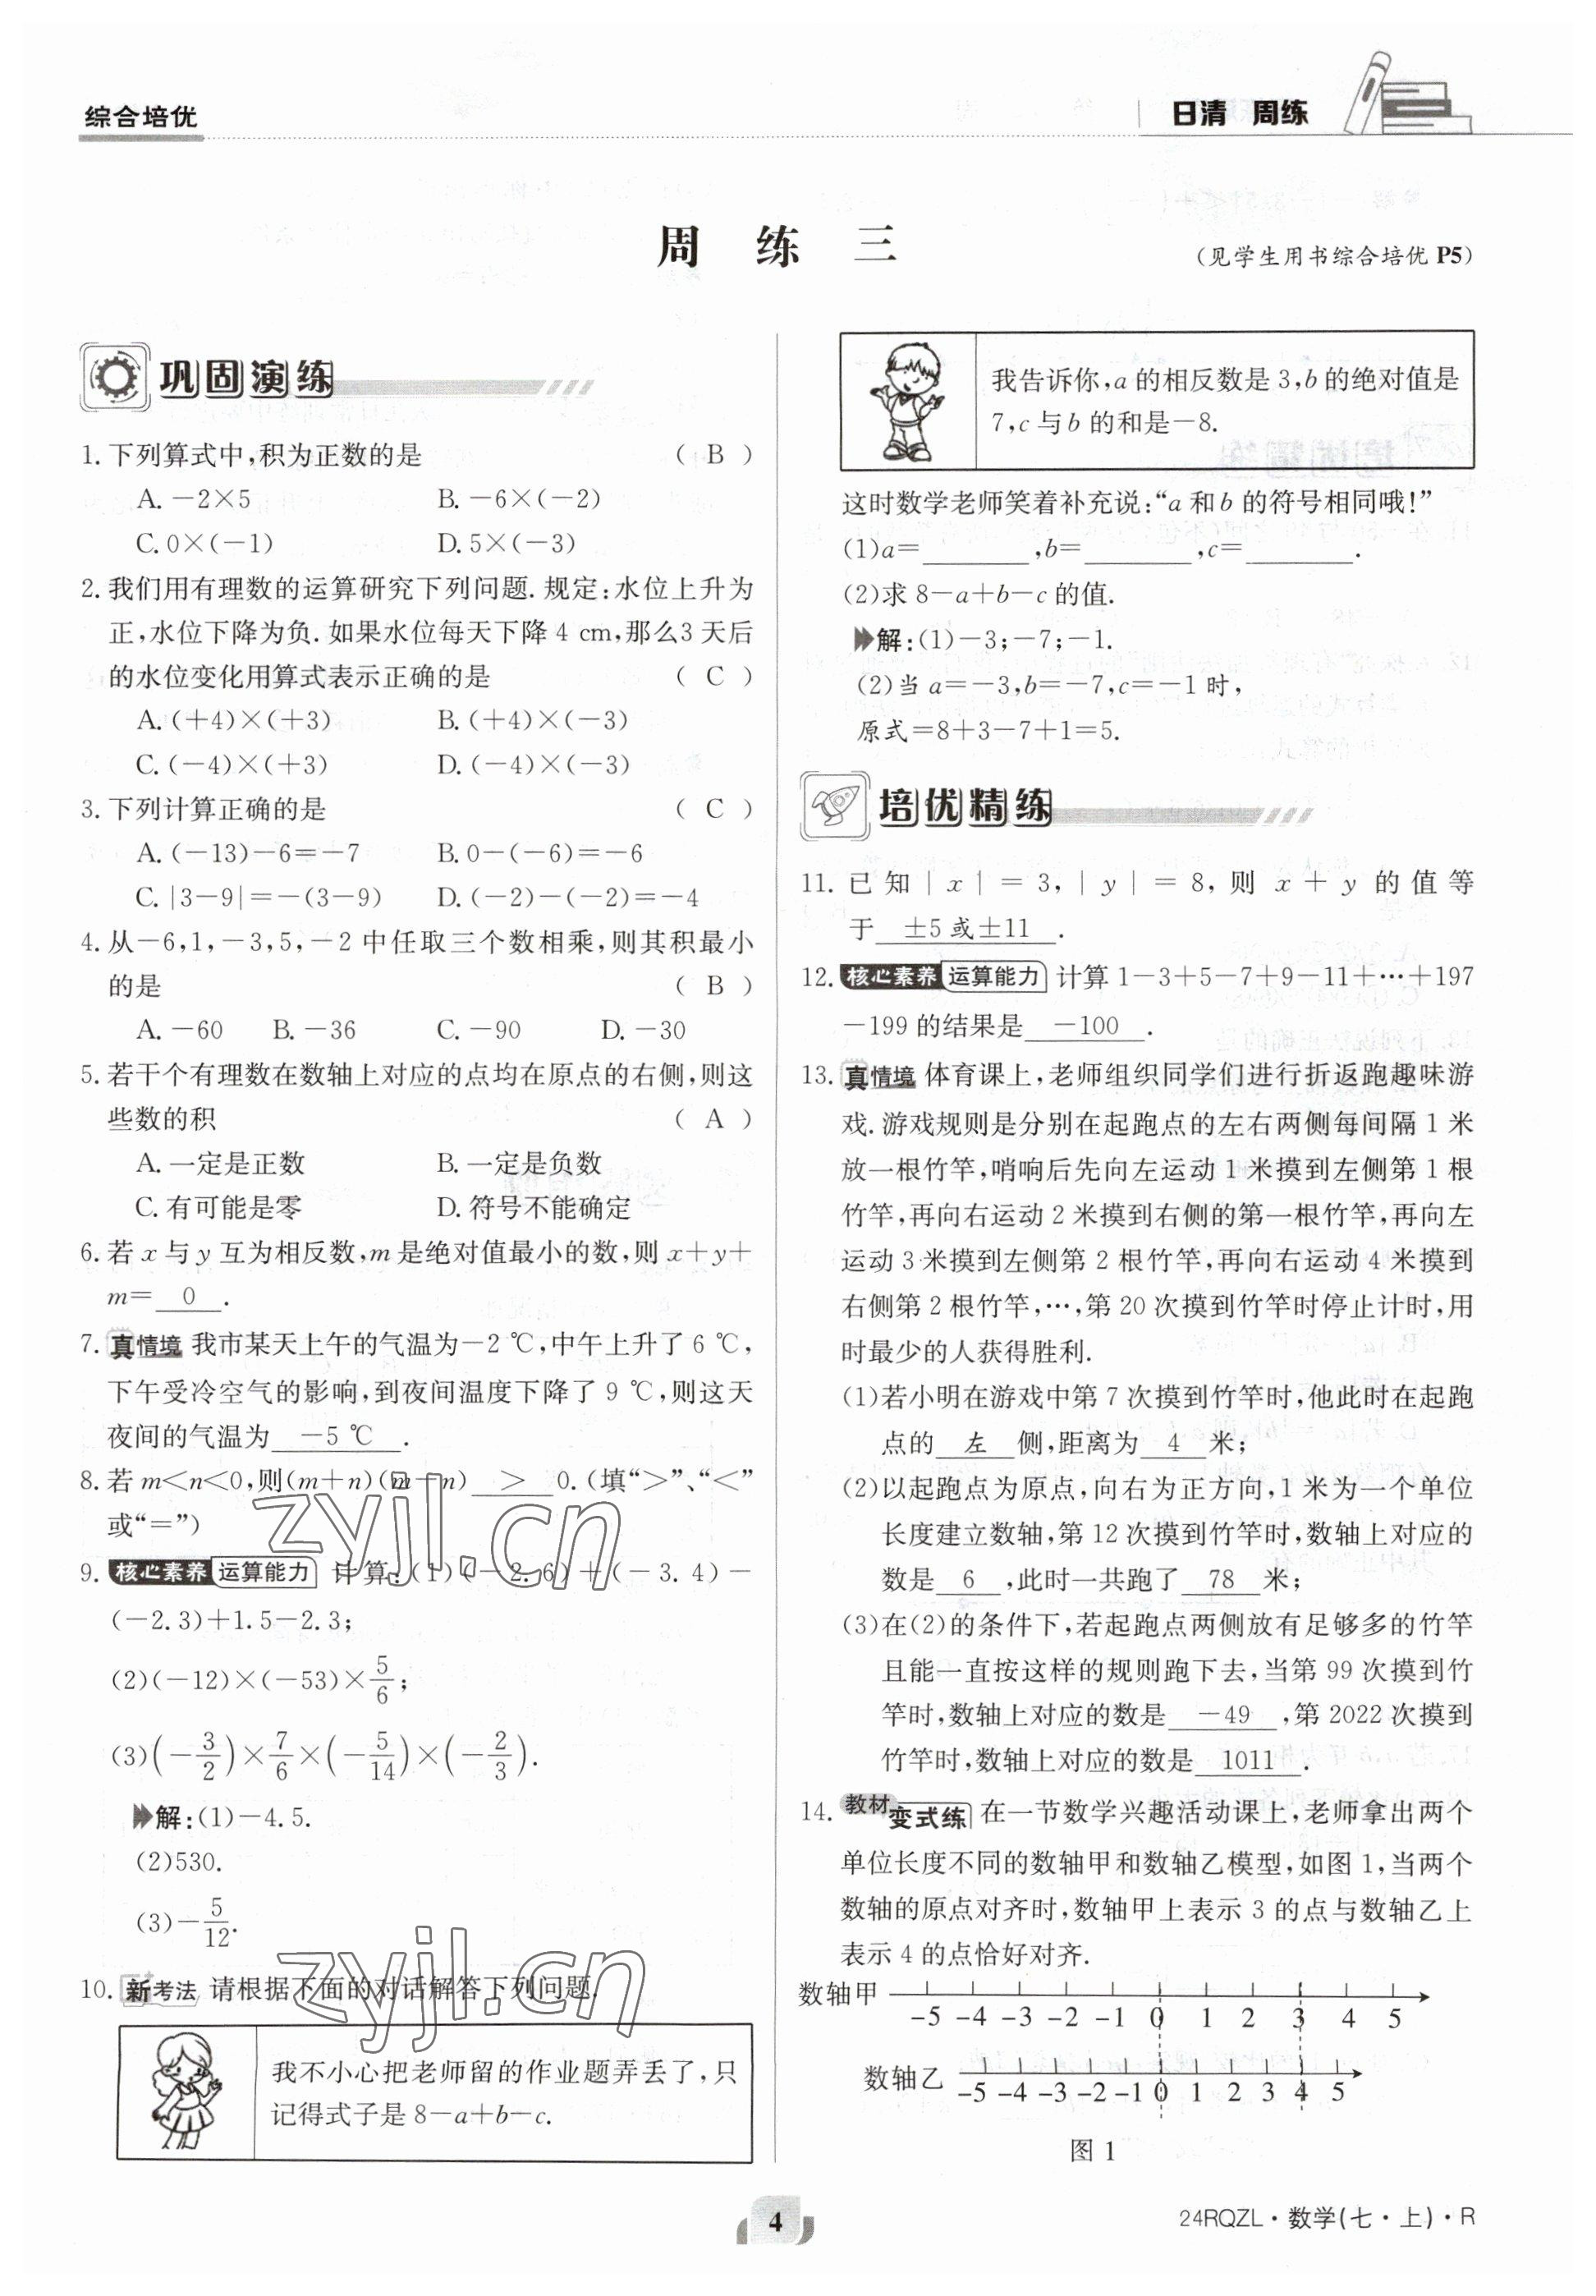 综合培优
日清 周练
周 练 三
(见学生用书综合培优 P5)
巩固演练
1. 下列算式中,积为正数的是 ( B )
A. －2×5 B. －6×(－2)
C. 0×(－1) D. 5×(－3)
2. 我们用有理数的运算研究下列问题. 规定:水位上升为
正,水位下降为负. 如果水位每天下降 4 cm,那么3 天后
的水位变化用算式表示正确的是 ( C )
A. (＋4)×(＋3) B. (＋4)×(－3)
C. (－4)×(＋3) D. (－4)×(－3)
3. 下列计算正确的是 ( C )
A. (－13)－6＝－7 B. 0－(－6)＝－6
C. |3－9|＝－(3－9) D. (－2)－(－2)＝－4
4. 从－6,1,－3,5,－2 中任取三个数相乘,则其积最小
的是 ( B )
A. －60 B. －36 C. －90 D. －30
5. 若干个有理数在数轴上对应的点均在原点的右侧,则这
些数的积 ( A )
A. 一定是正数 B. 一定是负数
C. 有可能是零 D. 符号不能确定
6. 若 x 与 y 互为相反数,m 是绝对值最小的数,则 x＋y＋
m＝ 0 .
7. 真情境 我市某天上午的气温为－2 ℃,中午上升了 6 ℃,
下午受冷空气的影响,到夜间温度下降了 9 ℃,则这天
夜间的气温为 －5 ℃ .
8. 若 m＜n＜0,则(m＋n)(m－n) ＞ 0. (填“＞”、“＜”
或“＝”)
9. 核心素养 运算能力 计算:(1)(－2.6)＋(－3.4)－
(－2.3)＋1.5－2.3;
(2)(－12)×(－53)×5/6;
(3)(－3/2)×7/6×(－5/14)×(－2/3).
解:(1)－4.5.
(2)530.
(3)－5/12.
10. 新考法 请根据下面的对话解答下列问题.
我不小心把老师留的作业题弄丢了,只
记得式子是 8－a＋b－c.
我告诉你,a 的相反数是 3,b 的绝对值是
7,c 与 b 的和是－8.
这时数学老师笑着补充说:“a 和 b 的符号相同哦!”
(1)a＝________,b＝________,c＝________.
(2)求 8－a＋b－c 的值.
解:(1)－3;－7;－1.
(2)当 a＝－3,b＝－7,c＝－1 时,
原式＝8＋3－7＋1＝5.
培优精练
11. 已知|x|＝3,|y|＝8,则 x＋y 的值等
于 ±5 或±11 .
12. 核心素养 运算能力 计算 1－3＋5－7＋9－11＋…＋197
－199 的结果是 －100 .
13. 真情境 体育课上,老师组织同学们进行折返跑趣味游
戏. 游戏规则是分别在起跑点的左右两侧每间隔 1 米
放一根竹竿,哨响后先向左运动 1 米摸到左侧第 1 根
竹竿,再向右运动 2 米摸到右侧的第一根竹竿,再向左
运动 3 米摸到左侧第 2 根竹竿,再向右运动 4 米摸到
右侧第 2 根竹竿,…,第 20 次摸到竹竿时停止计时,用
时最少的人获得胜利.
(1)若小明在游戏中第 7 次摸到竹竿时,他此时在起跑
点的 左 侧,距离为 4 米;
(2)以起跑点为原点,向右为正方向,1 米为一个单位
长度建立数轴,第 12 次摸到竹竿时,数轴上对应的
数是 6 ,此时一共跑了 78 米;
(3)在(2)的条件下,若起跑点两侧放有足够多的竹竿
且能一直按这样的规则跑下去,当第 99 次摸到竹
竿时,数轴上对应的数是 －49 ,第 2022 次摸到
竹竿时,数轴上对应的数是 1011 .
14. 教材变式练 在一节数学兴趣活动课上,老师拿出两个
单位长度不同的数轴甲和数轴乙模型,如图 1,当两个
数轴的原点对齐时,数轴甲上表示 3 的点与数轴乙上
表示 4 的点恰好对齐.
数轴甲 －5 －4 －3 －2 －1 0 1 2 3 4 5
数轴乙 －5 －4 －3 －2 －1 0 1 2 3 4 5
图 1
zyjl.cn
zyjl.cn
4
24RQZL·数学(七·上)·R